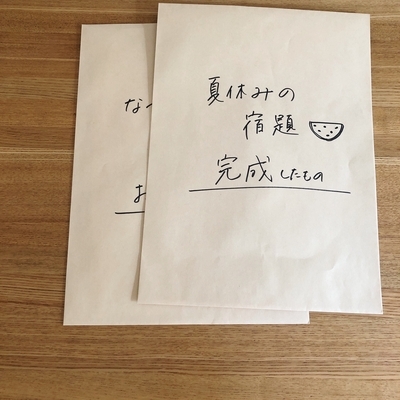 夏休みの
宿題
完成したもの
な
お